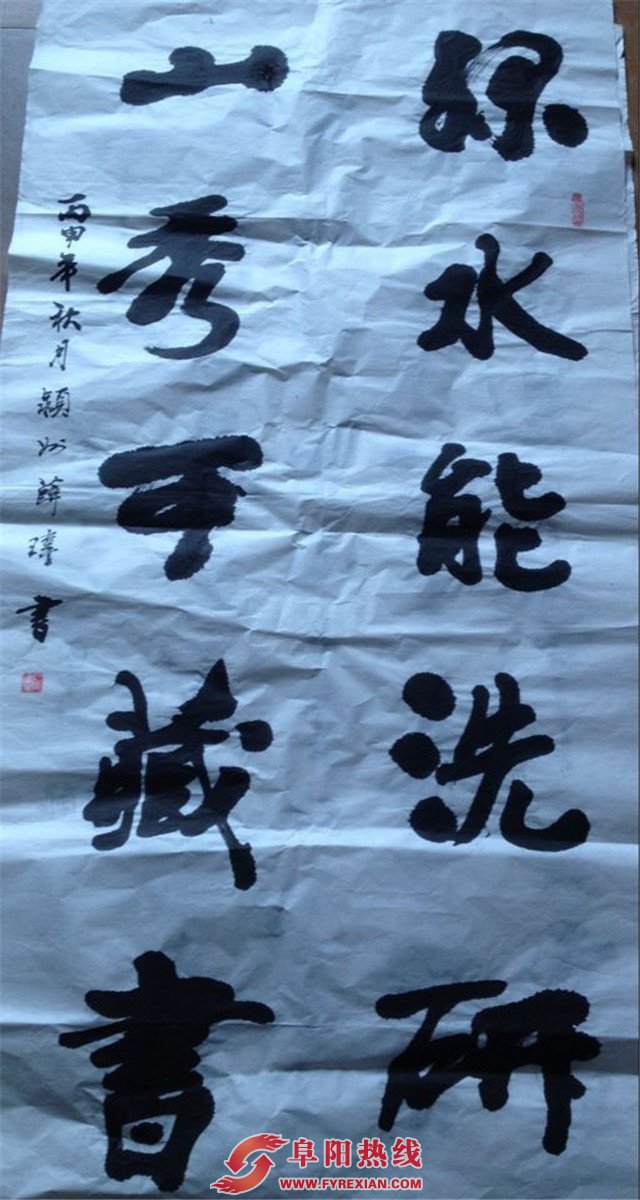 緑水能洗研
山秀可藏書
丙申年秋月潁州薛書
阜阳热线
WWW.FYREXIAN.COM